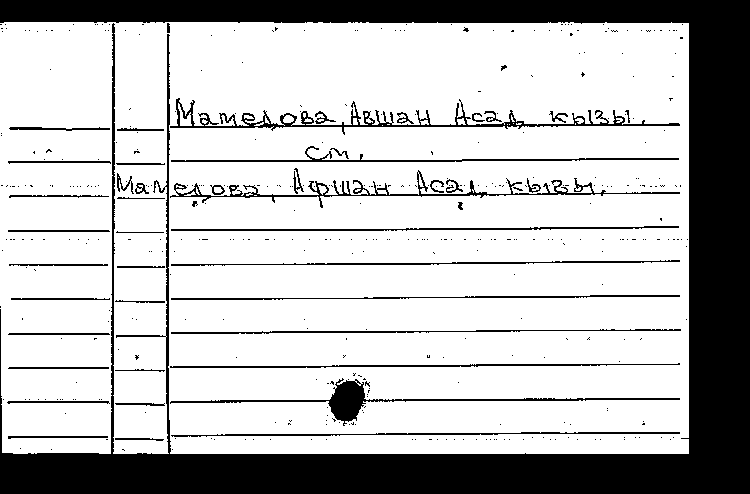 Мамедова, Авшан Асад кызы.
см.
Мамедова, Афшан Асад кызы.